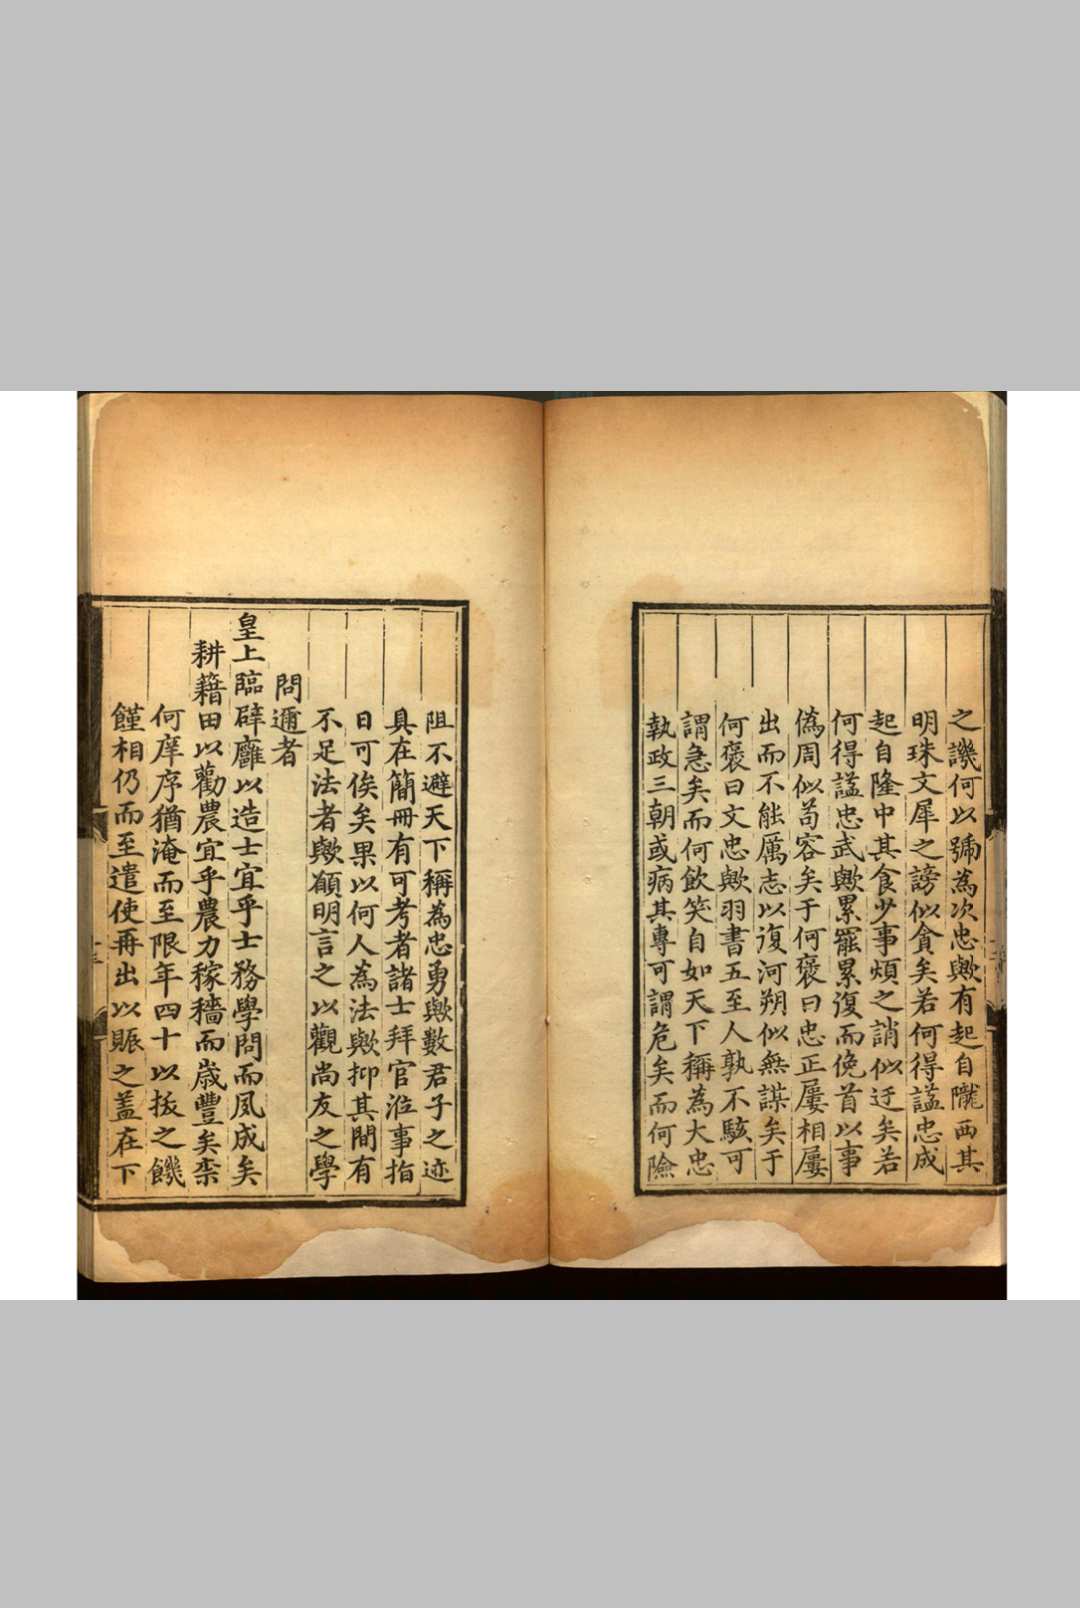 之譏何以號為次忠歟有起自隴西其
明珠文犀之謗似貪矣若何得諡忠成
起自隆中其食少事煩之誚似迂矣若
何得諡忠武歟累罷累復而俛首以事
偽周似苟容矣于何褒曰忠正屢相屢
出而不能厲志以復河朔似無謀矣于
何褒曰文忠歟羽書五至人孰不駭可
謂急矣而何飲笑自如天下稱為大忠
執政三朝或病其專可謂危矣而何險
阻不避天下稱為忠勇歟數君子之迹
具在簡冊有可考者諸士拜官涖事指
日可俟矣果以何人為法歟抑其間有
不足法者歟顧明言之以觀尚友之學
問邇者
皇上臨辟廱以造士宜乎士務學問而夙成矣
耕籍田以勸農宜乎農力稼穡而歲豐矣柰
何庠序猶淹而至限年四十以拔之饑
饉相仍而至遣使再出以賑之蓋在下